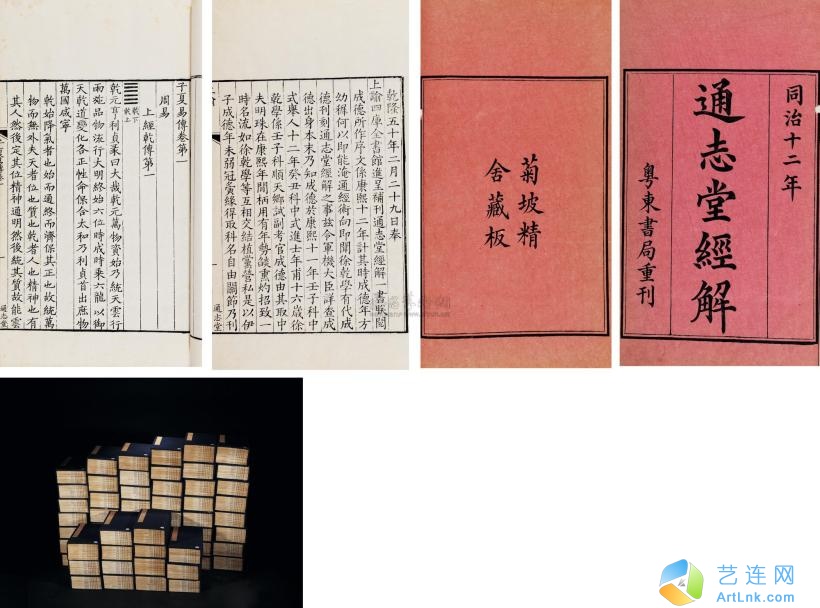 子夏易傳卷第一
周易
上經乾傳第一
乾下
乾上
乾元亨利貞彖曰大哉乾元萬物資始乃統天雲行
雨施品物流行大明終始六位時成時乘六龍以御
天乾道變化各正性命保合太和乃利貞首出庶物
萬國咸寧
乾始降氣者也始而通終而濟保其正也故統萬
物而無外夫天者位也質也乾者人也精神也有
其人然後定其位精神通明然後統其質故能雲
通志堂
乾隆五十年二月二十九日奉
上諭四庫全書館進呈補刊通志堂經解一書朕閱
成德所作序文係康熙十二年計其時成德年方
幼穉何以即能淹通經術向即聞徐乾學有代成
德刊刻通志堂經解之事茲令軍機大臣詳查成
德出身本末乃知成德於康熙十一年壬子科中
式舉人十二年癸丑科中式進士年甫十六歲徐
乾學係壬子科順天鄉試副考官成德由其取中
夫明珠在康熙年間柄用有年勢燄熏灼招致一
時名流如徐乾學等互相交結植黨營私是以伊
子成德年未弱冠夤緣得取科名自由關節乃刊
通志堂
菊坡精
舍藏板
同治十二年
通志堂經解
粵東書局重刊
艺连网
ArtLnk.com